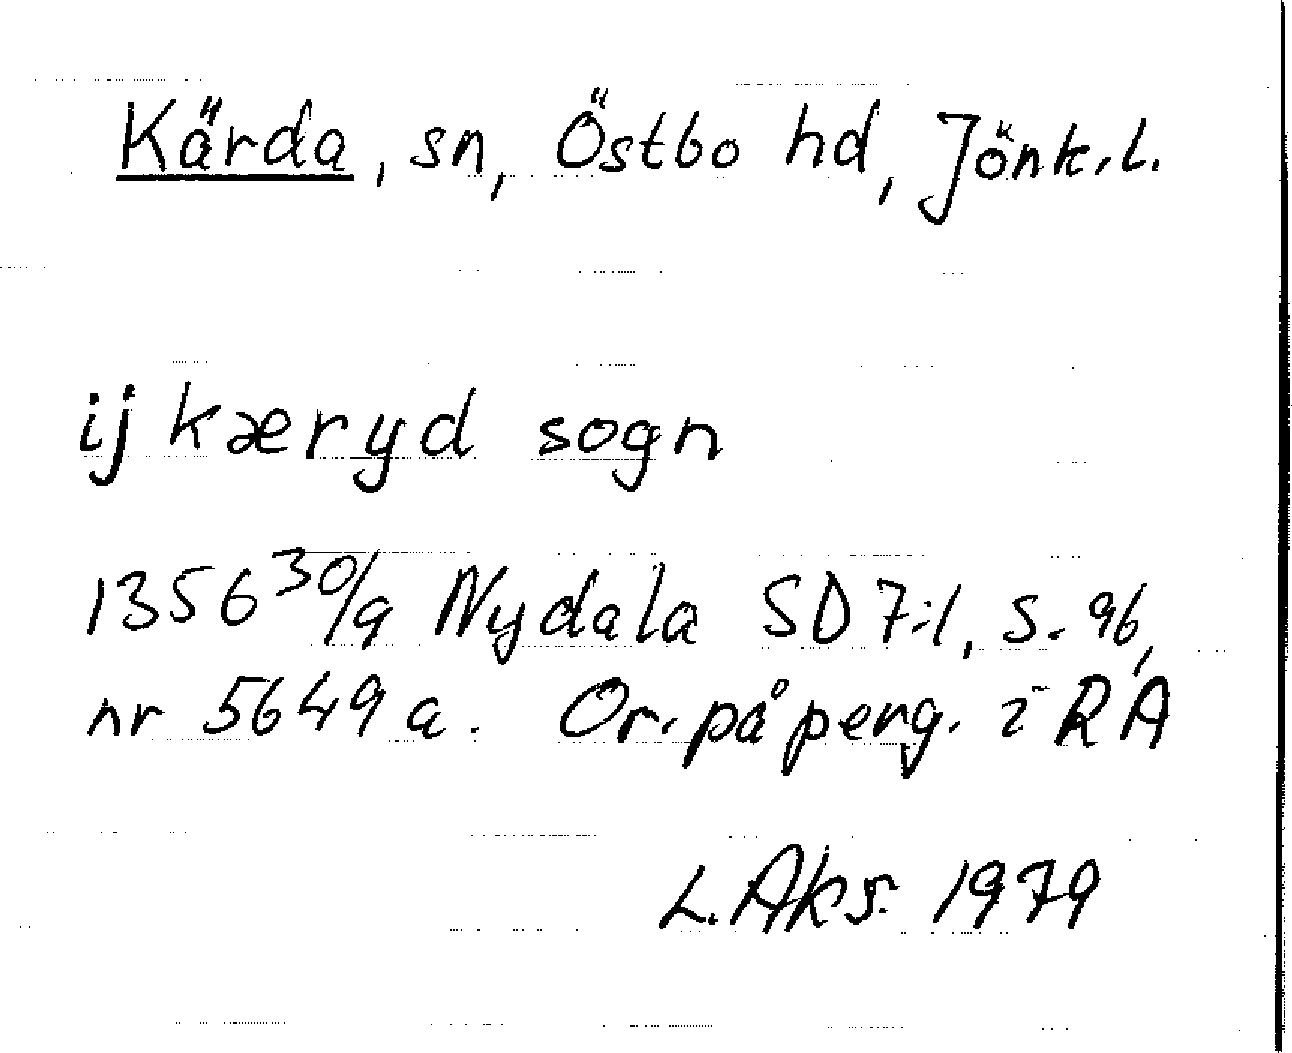 Kärda, sn, Östbo hd, Jönk.l.
ij kæryd sogn
1356 30/9 Nydala SD 7:1, s. 96,
nr 5649 a. Or. på perg. i RA
L. Aks. 1979